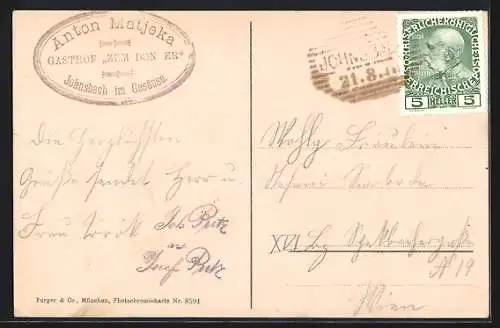 Anton Matjeka
GASTHOF „ZUM DON ER"
Johnsbach im Gesäuse.
JOHNS
21.8.11
KAISERLICHEKÖNIGLICHE
ÖSTERREICHISCHE POST
5 HELLER 5
Die Herzlichsten
Grüße sendet Herr u.
Frau Török Joh Reitz
u
Josef Reitz
Wohlg Fräulein
XVI
№ 19
Wien
Purger & Co., München, Photochromiekarte Nr. 8591